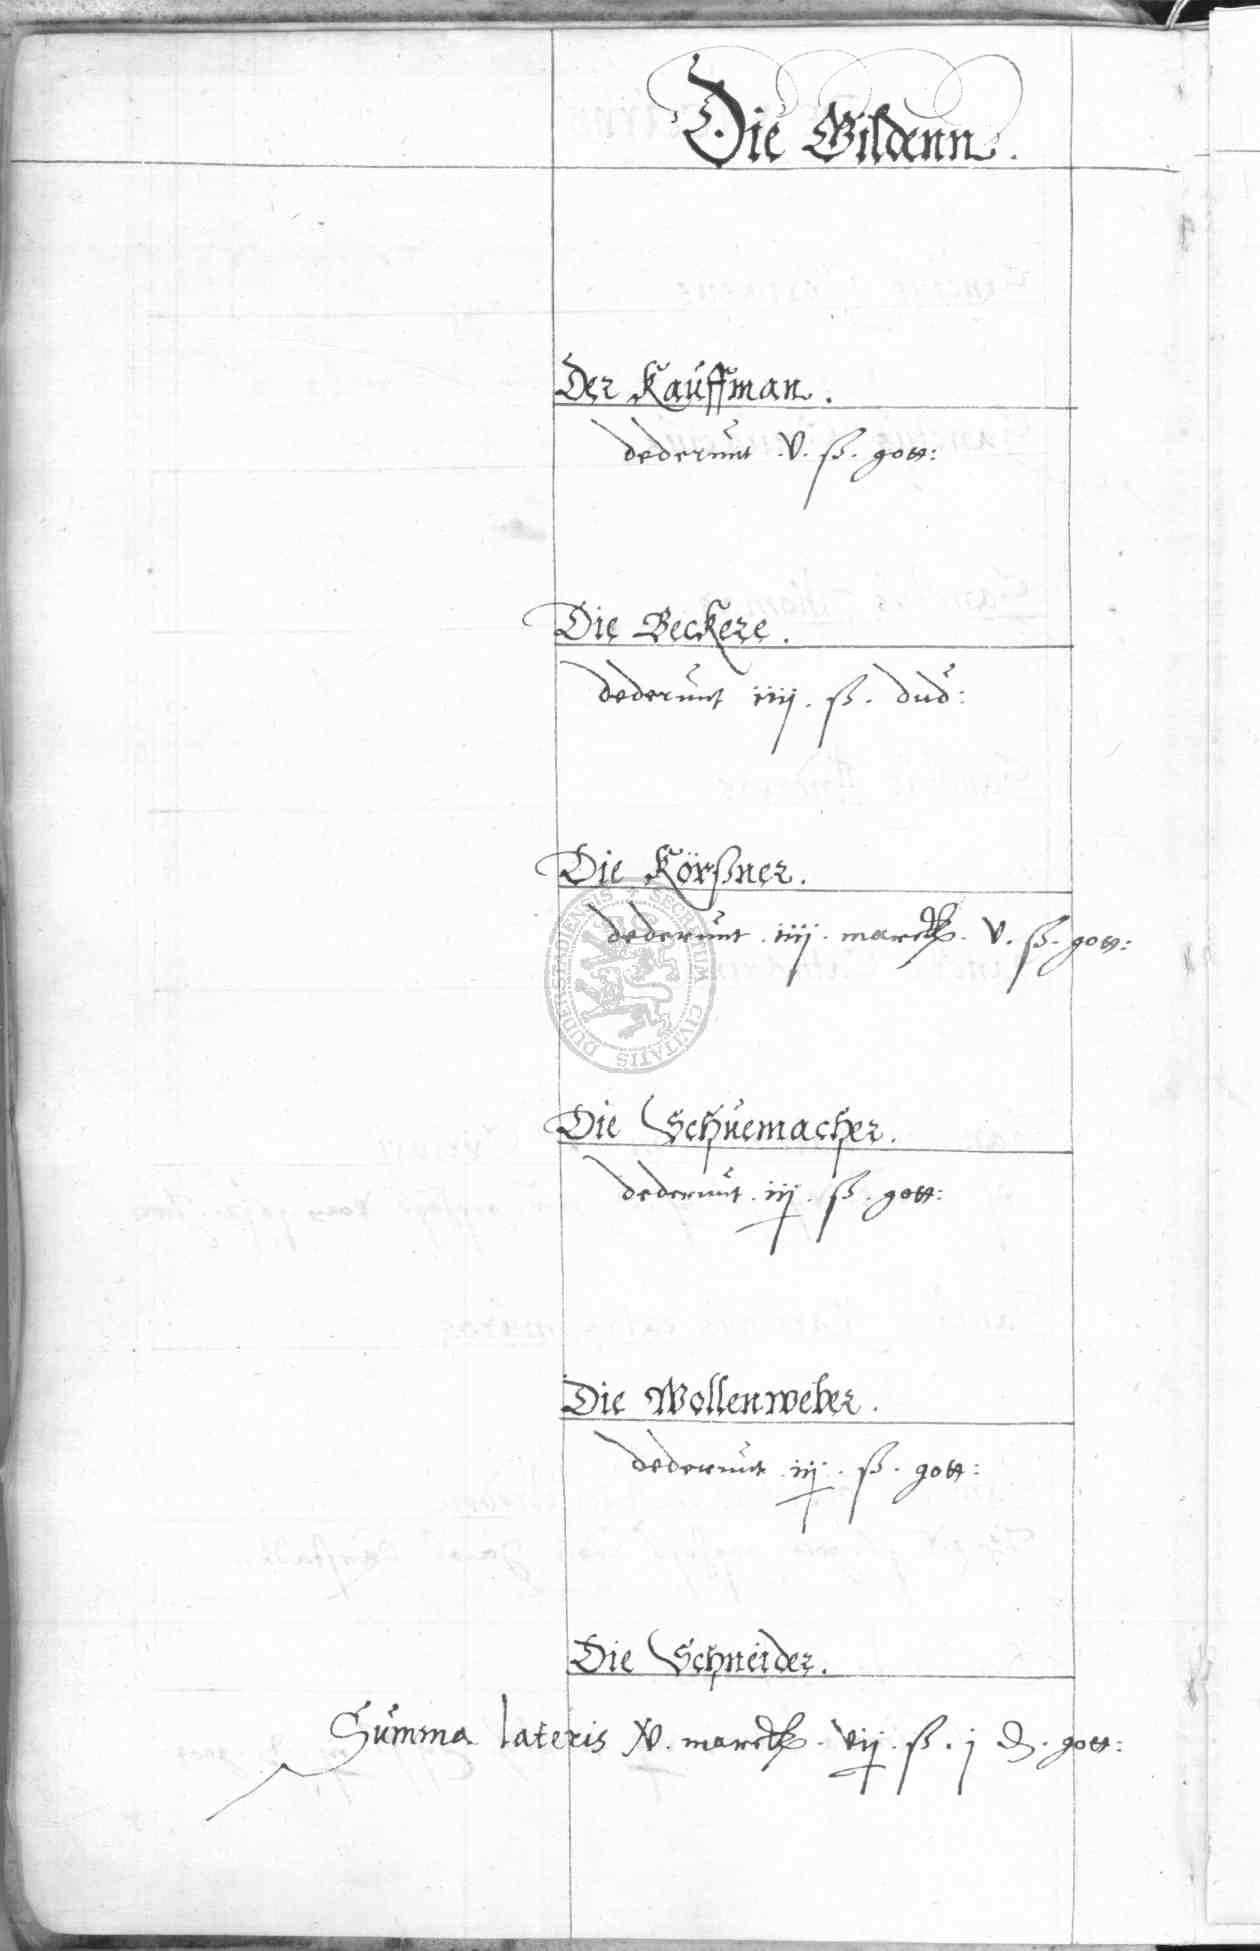 Die Gildenn.
Der Kauffman.
dederunt .v. ß. gott:
Die Beckere.
dederunt iiij. ß. dud:
Die Körßner.
dederunt .iiij. marck. v. ß. gott:
SECRETUM CIVITATIS DUDERSTADIENSIS
Die Schuemacher.
dederunt .iij. ß. gott:
Die Wollenweber.
dederunt .iij. ß. gott:
Die Schneider.
Summa lateris v. marck. vij. ß. j d. gott: